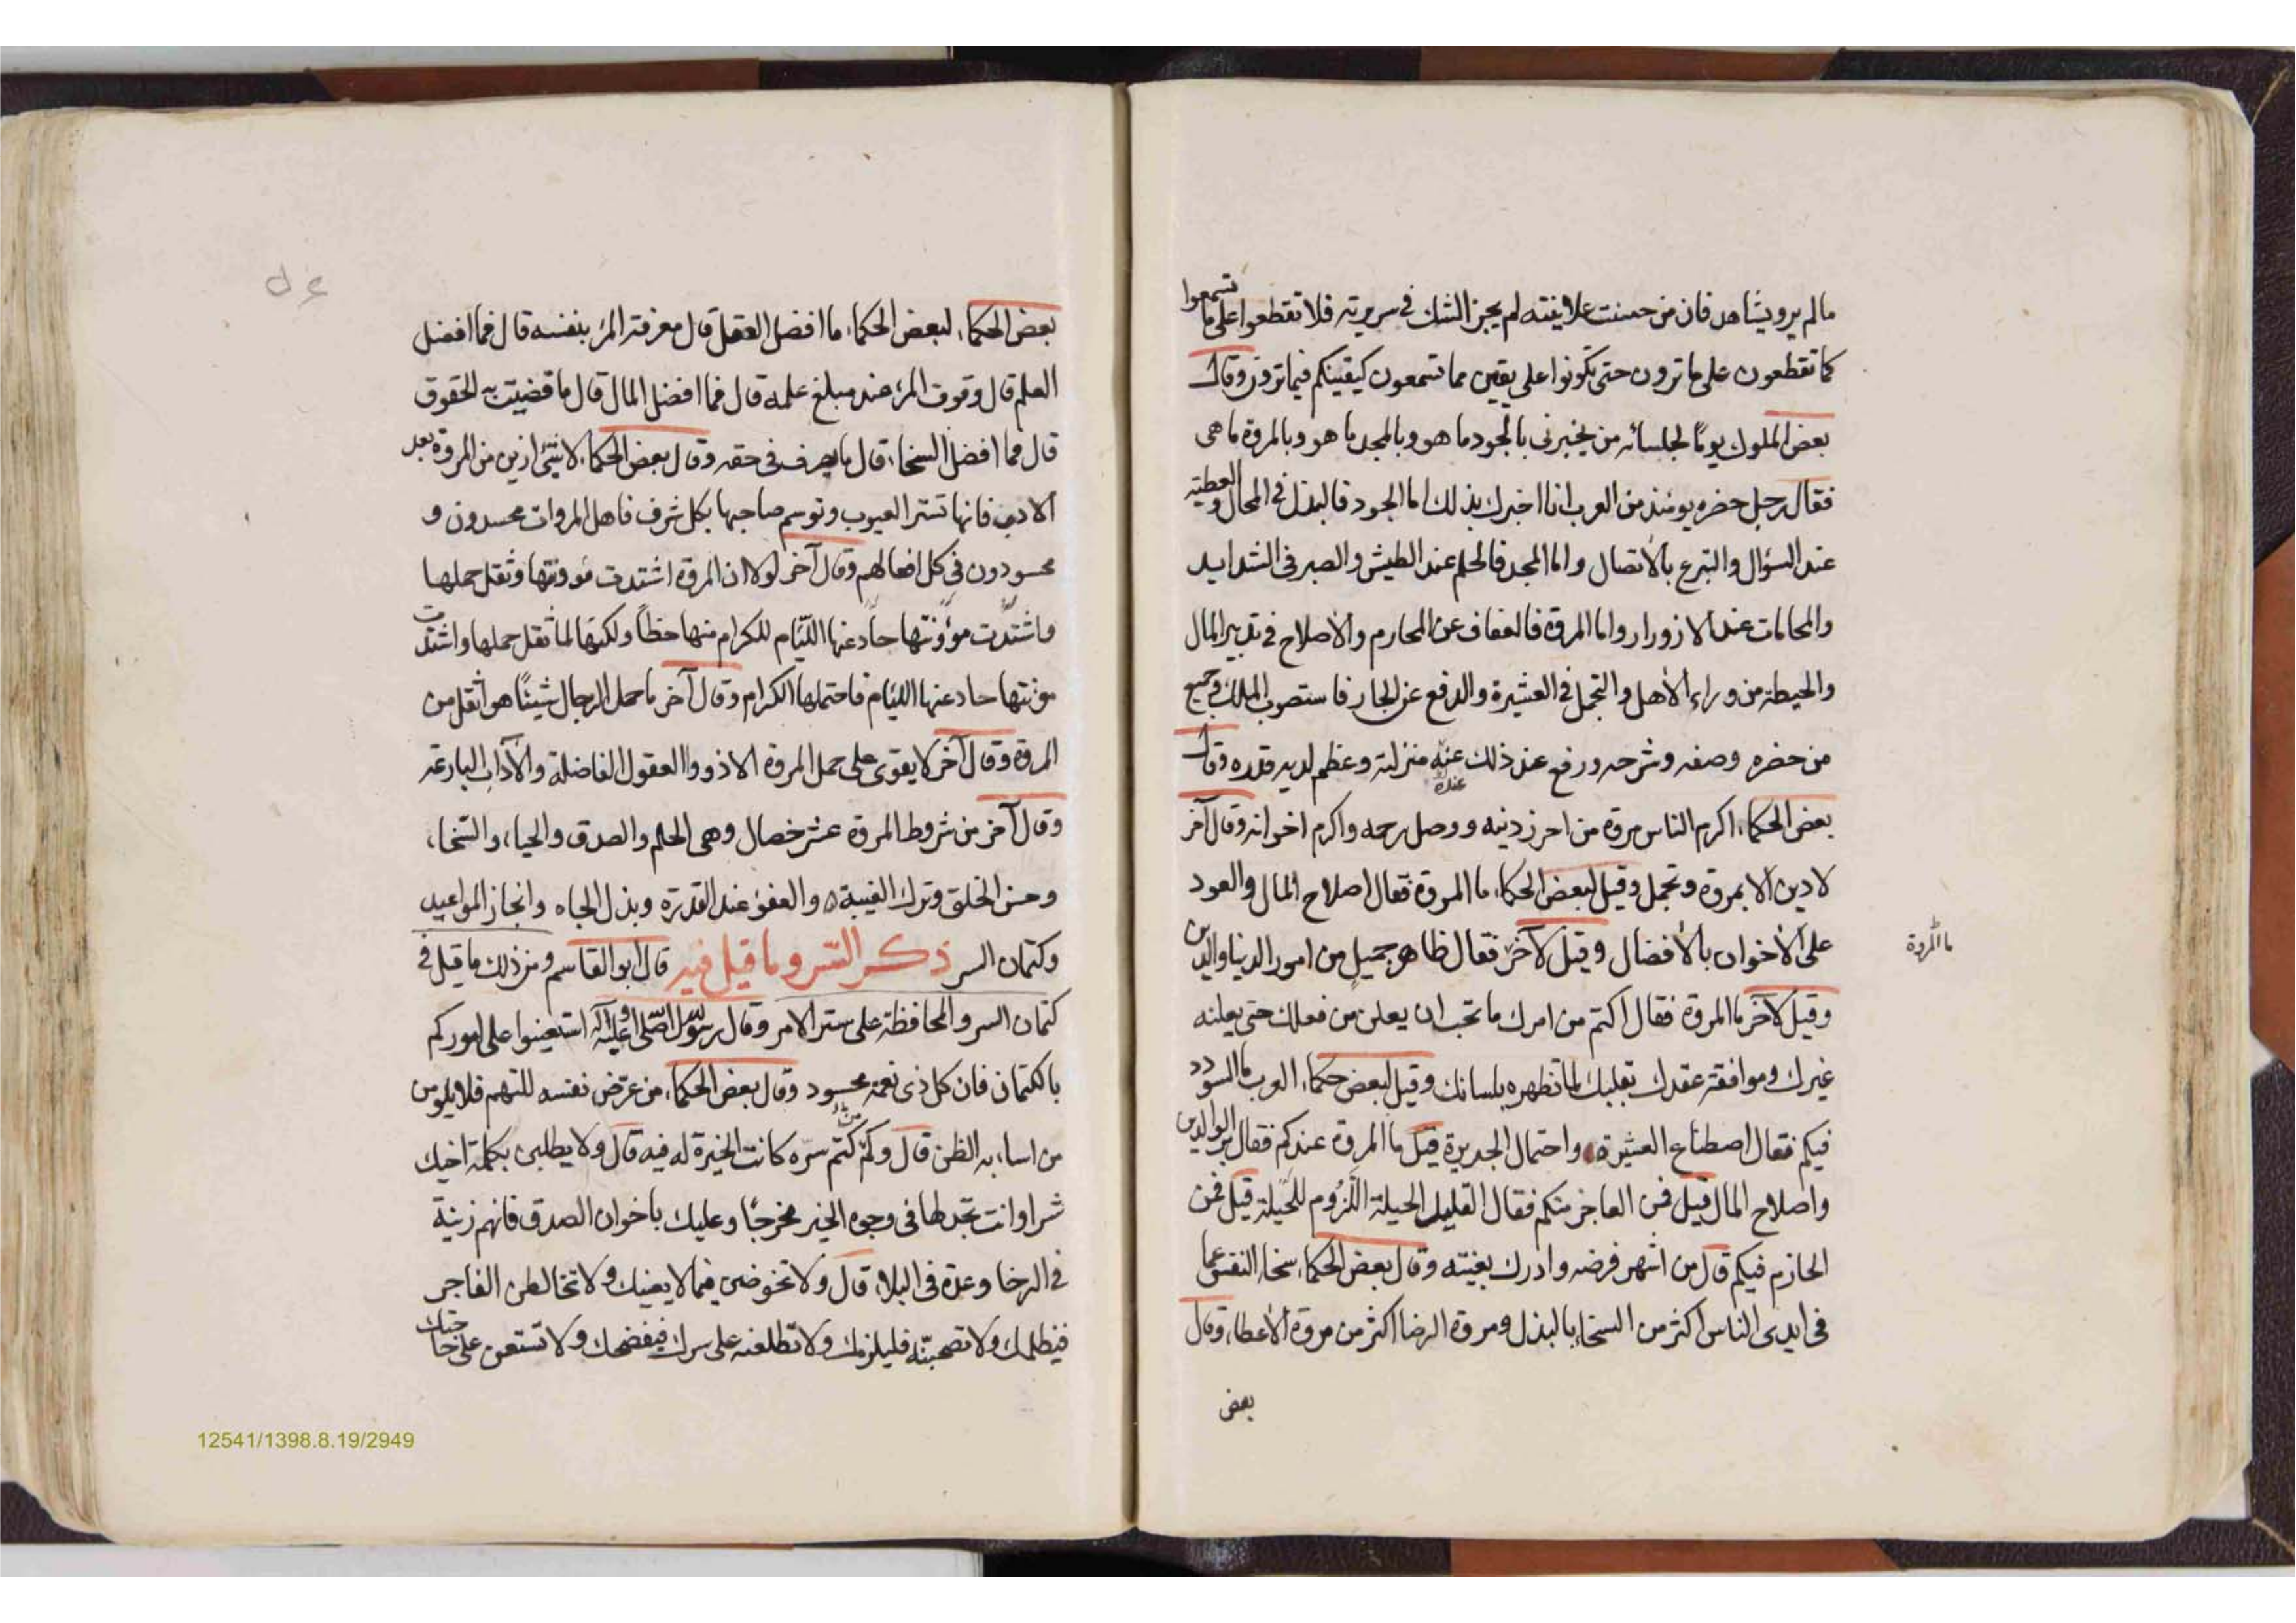 مالم يرو يشاهد فان من حسنت علانيته لم يجز الشك في سريرته فلا تقطعوا على ما تسمعوا
كما تقطعون على ما ترون حتى تكونوا على يقين مما تسمعون كيقينكم فيما ترون وقال
بعض الملوك يومًا لجلسائه من يخبرني بالجود ما هو وبالمجد ما هو وبالمروة ما هى
فقال رجل حضره يومئذ من العرب انا اخبرك بذلك اما الجود فالبذل في المحال والعطيه
عند السؤال والتبرع بالأتصال واما المجد فالحلم عند الطيش والصبر فى الشدايد
والمحامات عند الازورار واما المروة فالعفاف عن المحارم والأصلاح في تدبير المال
والحيطة من وراء الأهل والتجمل في العشيرة والدفع عن الجار فاستصوب الملك وجميع
من حضره وصفه وشرحه ورفع عند ذلك عنه منزلته وعظم لديه قدره وقال
عنده
بعض الحكماء اكرم الناس مروة من احرز دينه ووصل رحمه واكرم اخوانه وقال آخر
لا دين الا بمروة وتجمل وقيل لبعض الحكماء ما المروة فقال اصلاح المال والعود
على الأخوان بالأفضال وقيل لآخر فقال ظاهر جميل من امور الدنيا والدين
ما المروة
وقيل لآخر ما المروة فقال اكتم من امرك ما تحب ان يعلن من فعلك حتى يعلنه
غيرك وموافقة عقدك بقلبك لما تظهره بلسانك وقيل لبعض حكماء العرب ما السودد
فيكم فقال اصطناع العشيرة واحتمال الجديرة قيل ما المروة عندكم فقال بر الوالدين
واصلاح المال قيل فمن العاجز منكم فقال القليل الحيلة اللزوم للحليلة قيل فمن
الحازم فيكم قال من اشهر فرضه وادرك بغيته وقال بعض الحكماء سخاء النفس عما
فى ايدى الناس اكثر من السخاء بالبذل ومروة الرضا اكثر من مروة الأعطاء وقال
بعض
بعض الحكماء لبعض الحكماء ما افضل العقل قال معرفة المرء بنفسه قال فما افضل
العلم قال وقوف المرء عند مبلغ علمه قال فما افضل المال قال ما قضيت به الحقوق
قال فما افضل السخاء قال ما يصرف فى حقه وقال بعض الحكماء لا شئ ازين من المروة بعد
الادب فانها تستر العيوب وتوسم صاحبها بكل شرف فاهل المروات محسدون و
محسودون في كل افعالهم وقال آخر لولا ان المروة اشتدت مؤونتها وثقل حملها
واشتدت مؤونتها حاد عنها اللئام للكرام منها حظاً ولكنها لما ثقل حملها واشتدت
مونتها حاد عنها اللئام فاحتملها الكرام وقال آخر ما حمل الرجال شيئًا هو اثقل من
المروة وقال آخر لا يقوى على حمل المروة الا ذووا العقول الفاضلة والآداب البارعة
وقال آخر من شروط المروة عشر خصال وهى الحلم والصدق والحياء والسخاء
وحسن الخلق وترك الغيبة والعفو عند القدرة وبذل الجاه وانجاز المواعيد
وكتمان السر ذكر السر وما قيل فيه قال ابو القاسم ومن ذلك ما قيل في
كتمان السر والمحافظة على ستر الامر وقال رسول الله صلى الله عليه وآله استعينوا على اموركم
بالكتمان فان كل ذى نعمة محسود وقال بعض الحكماء من عرّض نفسه للتهم فلا يلومن
من اساء به الظن قال ومن كتم سرّه كانت الخيرة له فيه قال ولا يطلبن بكلمة اخيك
شرا وانت تجد لها فى وجوه الخير مخرجًا وعليك باخوان الصدق فانهم زينة
في الرخا وعدة فى البلاء قال ولا تخوضن فيما لا يعنيك ولا تخالطن الفاجر
فيظلمك ولا تصحبنّه فليلزمك ولا تطلعنه على سرك فيفضحك ولا تستعن على حاجتك
12541/1398.8.19/2949